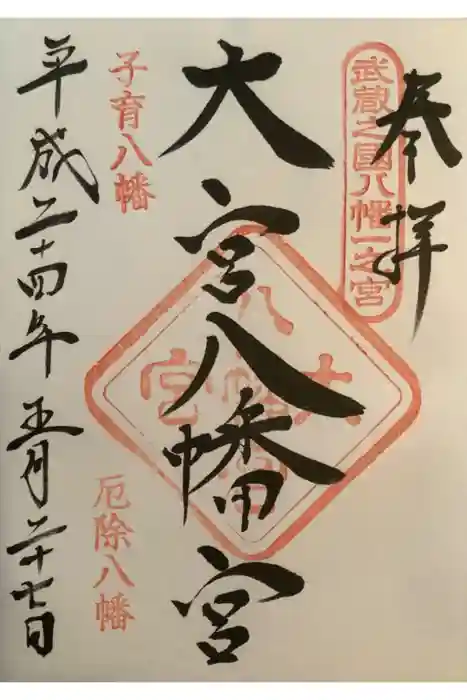 奉拝
武蔵之国八幡一之宮
大宮八幡宮
大宮八幡宮
子育八幡
厄除八幡
平成二十四年五月二十七日